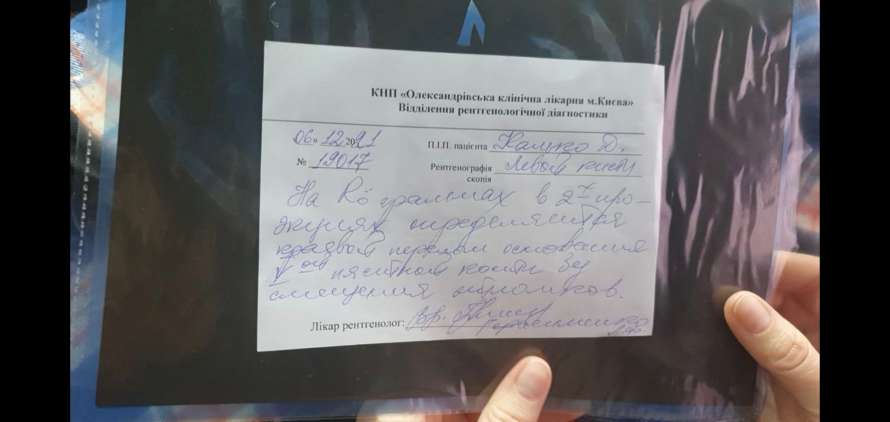 КНП «Олександрівська клінічна лікарня м.Києва»
Відділення рентгенологічної діагностики
06» 12 2021 П.І.П. пацієнта Д.
№ 19017 Рентгенографія левой кисти
скопія
На R-граммах в 2х про-
екциях определяется
краевой перелом основания
V ой пястной кости без
смещения отломков.
Лікар рентгенолог: